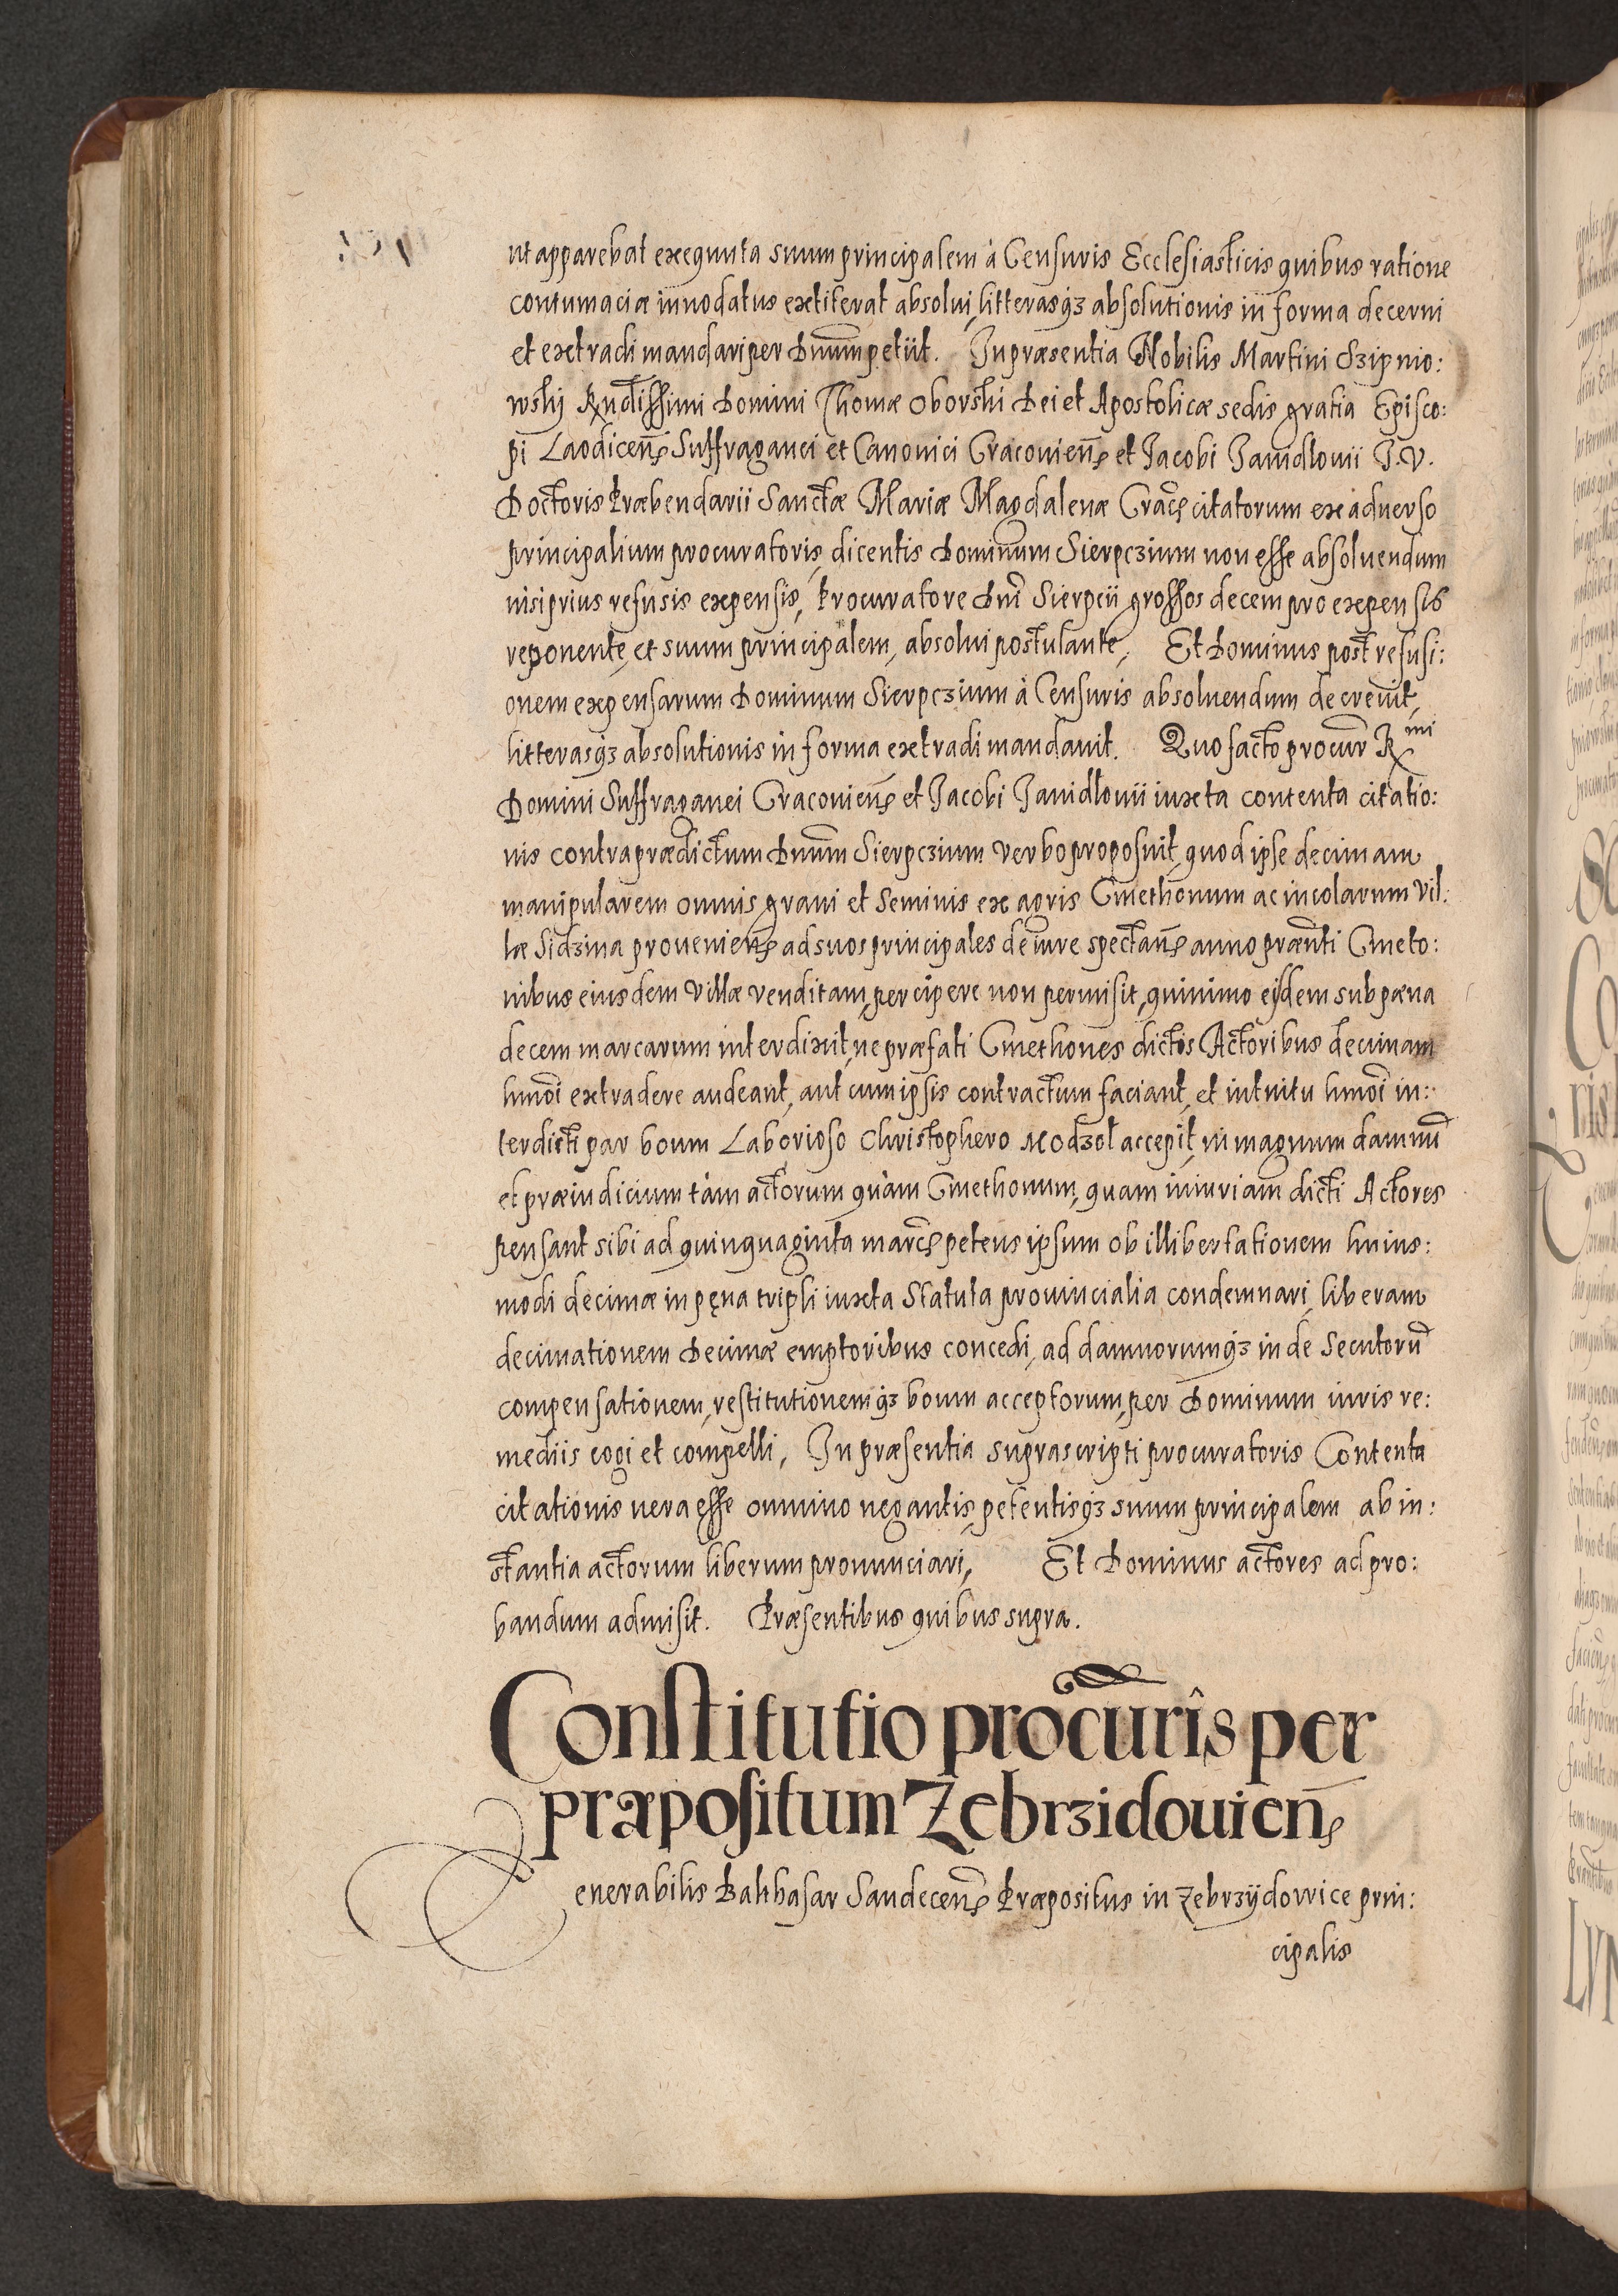 ut apparebat exequuta suum principalem à Censuris Ecclesiasticis quibus ratione
contumaciæ innodatus extiterat absolui, litterasq́ꝫ absolutionis in forma decerni
et extradi mandari per Dnūm petiit. In præsentia Nobilis Martini Szipnio:
wskj Rndissimi Domini Thomæ Oborski Dei et Apostolicæ sedis gratia Episco:
pi Laodicen̄ Suffraganei et Canonici Cracouien̄ et Jacobi Janidlouii J.V.
Doctoris Præbendarii Sanctæ Mariæ Magdalenæ Crac̄ citatorum ex aduerso
principalium procuratoris, dicentis Dominum Sierpczium non esse absoluendum
nisi prius refusis expensis, Procuratore Dnī Sierpcii grossos decem pro expensis
reponente, et suum principalem, absolui postulante, Et Dominus post refusi:
onem expensarum Dominum Sierpczium à Censuris absoluendum decreuit,
litterasq́ꝫ absolutionis in forma extradi mandauit. Quo facto procur̄ Rmi
Domini Suffraganei Cracouien̄ et Jacobi Janidlouii iuxta contenta citatio:
nis contra prædictum Dnūm Sierpczium verbo proposuit, quod ipse decimam
manipularem omnis grani et seminis ex agris Cmethonum ac incolarum Vil:
læ Sidzina prouenien̄ ad suos principales de iure spectan̄ anno præn̄ti Cmeto:
nibus eiusdem Villæ venditam, percipere non permisit, quinimo eisdem sub pæna
decem marcarum interdixit, ne præfati Cmethones dictis Actoribus decimam
hmōi extradere audeant, aut cum ipsis contractum faciant, et intuitu hmōi in:
terdicti par boum Laborioso Christophero Modzol accepit, in magnum damnū
et præiudicium tàm actorum quàm Cmethonum, quam iniuriam dicti Actores
pensant sibi ad quinquaginta marc̄ petens ipsum ob illibertationem huius:
modi decimæ in pęna tripli iuxta Statuta prouincialia condemnari, liberam
decimationem Decimæ emptoribus concedi, ad damnorumq́ꝫ inde Secutorū
compensationem, restitutionemq́ꝫ boum acceptorum, per Dominum iuris re:
mediis cogi et compelli, In præsentia suprascripti procuratoris Contenta
citationis uera esse omnino negantis, petentisq́ꝫ suum principalem ab in:
stantia actorum liberum pronunciari, Et Dominus actores ad pro:
bandum admisit. Præsentibus quibus supra.
Constitutio procūris per
præpositum Zebrzidouien̄
Venerabilis Balthasar Sandecen̄ Præpositus in Zebrzÿdowice prin:
cipalis